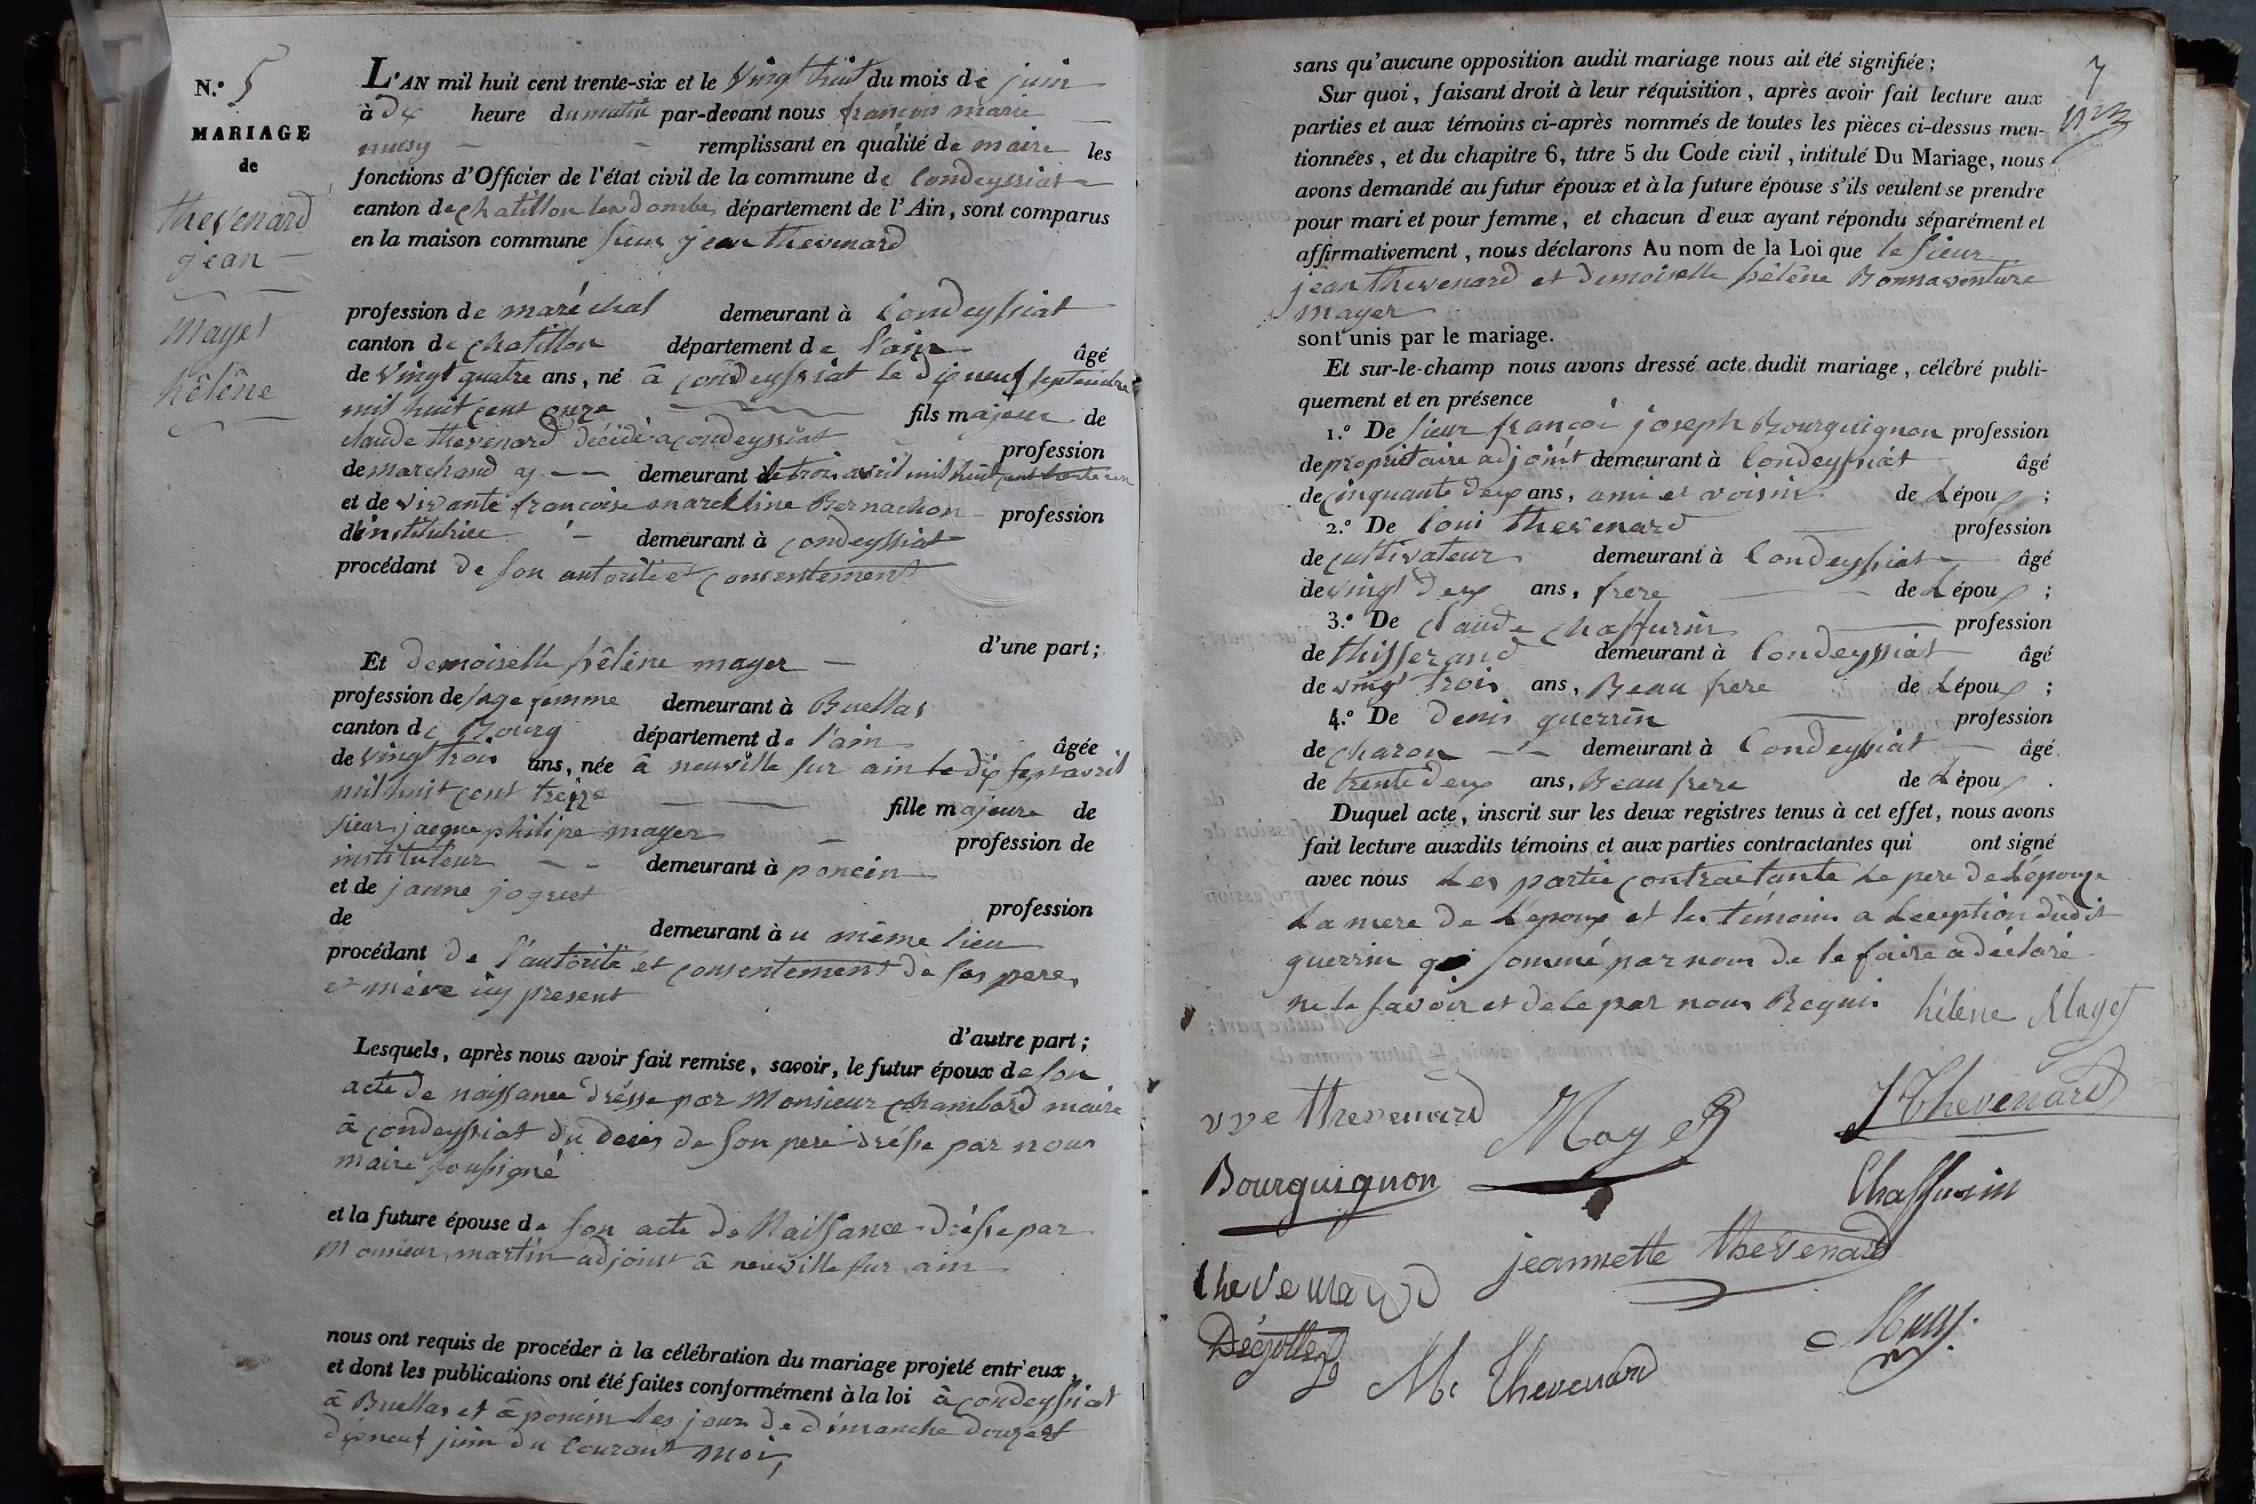 N.° 5
MARIAGE
de
thevenard
jean
mayet
hélène
L'AN mil huit cent trente-six et le vingt huit du mois de juin
à dix heure du matin par-devant nous françois marie
remplissant en qualité de maire les
fonctions d'Officier de l'état civil de la commune de Condeyssiat
canton de chatillon les dombes département de l'Ain, sont comparus
en la maison commune sieur jean thevenard
profession de maréchal demeurant à Condeyssiat
canton de chatillon département de l'ain âgé
de vingt quatre ans, né à condeyssiat le dix neuf septembre
mil huit cent onze fils majeur de
claude thevenard décédé a condeyssiat profession
de marchand demeurant le trois avril mil huit cent trente un
et de vivante francoise Bernachon profession
d'institutrice demeurant à condeyssiat
procédant de son autorité et consentement
d'une part;
Et demoiselle hélène mayer
profession de sage femme demeurant à Buellas
canton de Bourg département de l'ain âgée
de vingt trois ans, née à neuville sur ain le dix sept avril
mil huit cent treize fille majeure de
sieur jacque philipe mayer profession de
instituteur demeurant à poncin
et de janne joguet profession
de demeurant à u même lieu
procédant de l'autorité et consentement de ses pere
et mére icy present
d'autre part;
Lesquels, après nous avoir fait remise, savoir, le futur époux de son
acte de naissance dréssé par Monsieur Chambard maire
à condeyssiat du deces de son pere dréssé par nous
maire soussigné
et la future épouse de son acte de Naissance dréssé par
Monsieur martin adjoint à neuville sur ain
nous ont requis de procéder à la célébration du mariage projeté entr'eux,
et dont les publications ont été faites conformément à la loi à condeyssiat
à Buellas et à poncin les jours de dimanche douze et
dix neuf juin du courant mois,
7
sans qu'aucune opposition audit mariage nous ait été signifiée;
Sur quoi, faisant droit à leur réquisition, après avoir fait lecture aux
parties et aux témoins ci-après nommés de toutes les pièces ci-dessus men-
tionnées, et du chapitre 6, titre 5 du Code civil, intitulé Du Mariage, nous
avons demandé au futur époux et à la future épouse s'ils veulent se prendre
pour mari et pour femme, et chacun d'eux ayant répondu séparément et
affirmativement, nous déclarons Au nom de la Loi que le sieur
jean thevenard et demoiselle hélène Bonnaventure
mayer
sont unis par le mariage.
Et sur-le-champ nous avons dressé acte dudit mariage, célébré publi-
quement et en présence
1.° De sieur françoi joseph Bourguignon profession
de propriétaire adjoint demeurant à Condeyssiat âgé
de cinquante deux ans, ami et voisin de L époux ;
2.° De loui thevenard profession
de cultivateur demeurant à Condeyssiat âgé
de vingt deux ans, frere de L époux ;
3.° De claude chaffurin profession
de thisserand demeurant à Condeyssiat âgé
de vingt trois ans, Beau frere de L époux ;
4.° De denis guerrin profession
de charon demeurant à Condeyssiat âgé
de trente deux ans, Beau frere de L époux .
Duquel acte, inscrit sur les deux registres tenus à cet effet, nous avons
fait lecture auxdits témoins et aux parties contractantes qui ont signé
avec nous Les partie contractante le pere de L'épouse
La mere de L'epoux et les témoins a Lexeption dudit
guerrin qui sommé par nous de le faire a déclaré
ne le savoir et dece par nous Requis hélène Mayet
vve thevenard Mayet J Thevenard
Bourguignon Chaffurin
thevenard jeannette thevenard
Mc Thevenard